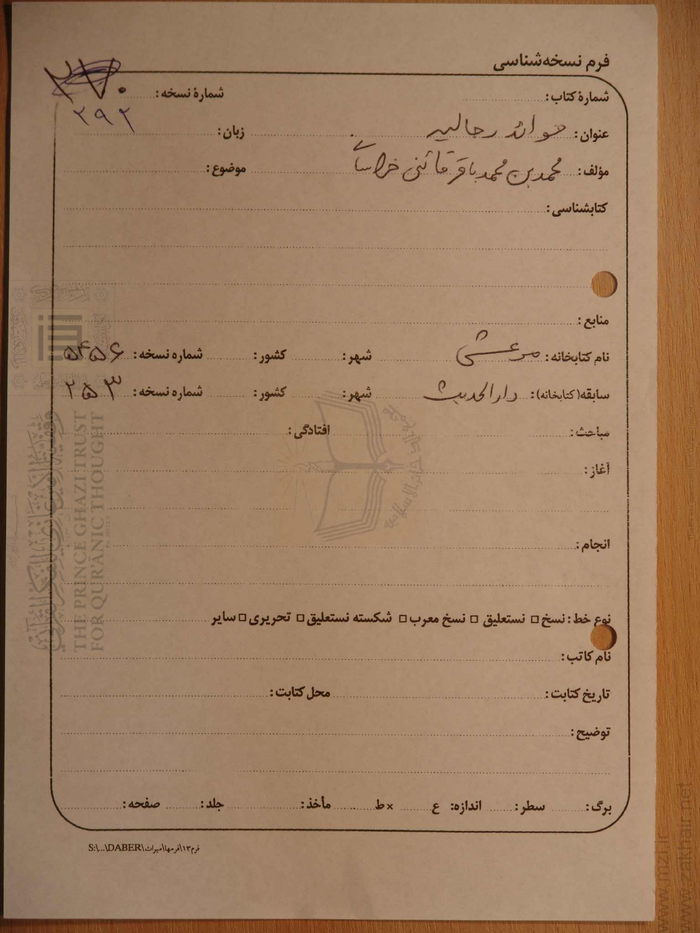 فرم نسخه‌شناسی
شمارهٔ کتاب: شمارهٔ نسخه: ۲۷۰
۲۹۲
عنوان: فوائد رجالیه زبان:
مؤلف: محمد بن محمد باقر قائنی خراسانی موضوع:
کتابشناسی:
منابع:
نام کتابخانه: مرعشی شهر: کشور: شماره نسخه: ۵۴۵۶
سابقه(کتابخانه): دارالحدیث شهر: کشور: شماره نسخه: ۲۵۳
مباحث: افتادگی:
آغاز:
انجام:
نوع خط: نسخ □ نستعلیق □ نسخ معرب □ شکسته نستعلیق □ تحریری □ سایر
نام کاتب:
تاریخ کتابت: محل کتابت:
توضیح:
برگ: سطر: اندازه: ع × ط مأخذ: جلد: صفحه:
فرم۱۳\فرمها\میراث\DABER\...\S:
THE PRINCE GHAZI TRUST
FOR QUR'ANIC THOUGHT
www.mzi.ir